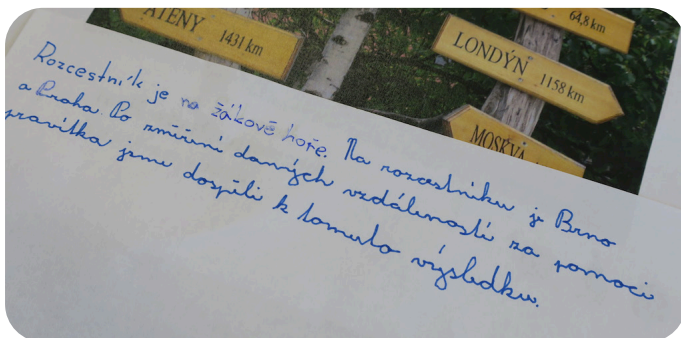 64,8 km
ATÉNY 1431 km
LONDÝN 1158 km
MOSKVA
Rozcestník je na žákově hoře. Na rozcestníku je Brno
a Praha. Po změření daných vzdáleností za pomoci
pravítka jsme dospěli k tomuto výsledku.